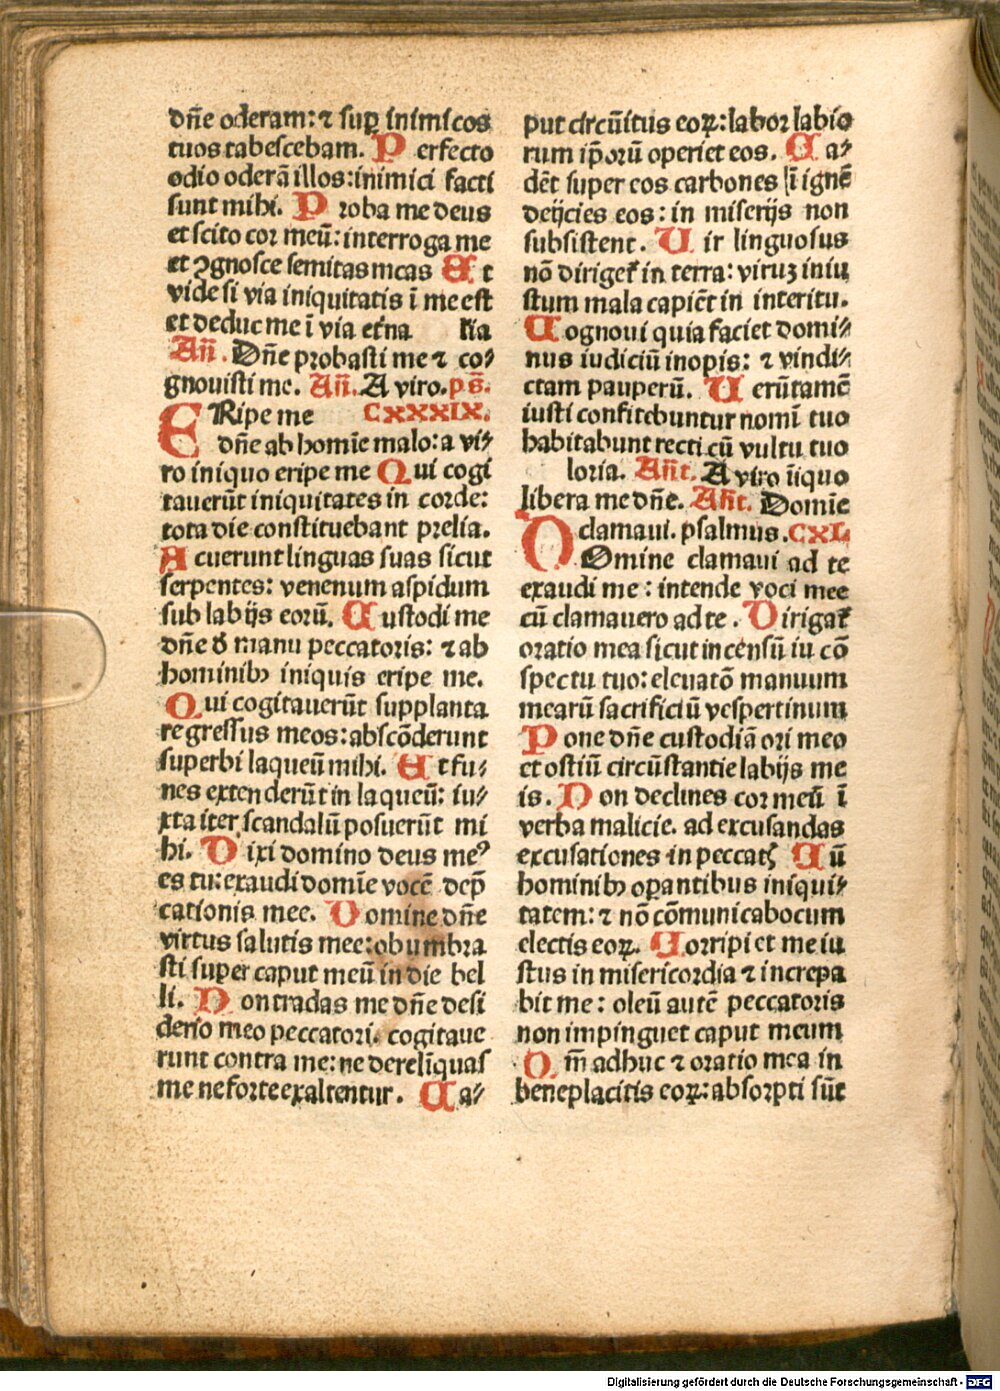 dñe oderam: ⁊ suꝑ inimicos
tuos tabescebam. P erfecto
odio oderā illos: inimici facti
sunt mihi. P roba me deus
et scito cor meū: interroga me
et ꝯgnosce semitas meas E t
vide si via iniquitatis ī me est
et deduc me ī via et̄na lia
Añ. Dñe probasti me ⁊ co⸗
gnouisti me. Añ. A viro. ps̄.
ERipe me CXXXIX.
dñe ab homīe malo: a vi⸗
ro iniquo eripe me Q ui cogi
tauerūt iniquitates in corde:
tota die constituebant prelia.
A cuerunt linguas suas sicut
serpentes: venenum aspidum
sub labijs eorū. C ustodi me
dñe đ manu peccatoris: ⁊ ab
hominibꝫ iniquis eripe me.
Q ui cogitauerūt supplanta
re gressus meos: abscōderunt
superbi laqueū mihi. E t fu⸗
nes extenderūt in laqueū: iu⸗
xta iter scandalū posuerūt mi
hi. D ixi domino deus meꝰ
es tu: exaudi domīe vocē dep̄
cationis mee. D omine dñe
virtus salutis mee: obumbra
sti super caput meū in die bel
li. N on tradas me dñe desi
derio meo peccatori. cogitaue
runt contra me: ne derelīquas
me ne forte exaltentur. C a⸗
put circūitus eoꝝ: labor labio
rum ip̄orū operiet eos. C a⸗
dēt super eos carbones ī ignē
deijcies eos: in miserijs non
subsistent. V ir linguosus
nō diriget̄ in terra: virūꝫ iniu
stum mala capiēt in interitu.
C ognoui quia faciet domi⸗
nus iudiciū inopis: ⁊ vindi⸗
ctam pauperū. V erūtamē
iusti confitebuntur nomī tuo
habitabunt recti cū vultu tuo
loria. Añt. A viro īiquo
libera me dñe. Añt. Domīe
D clamaui. psalmus. CXL
Omine clamaui ad te
exaudi me: intende voci mee
cū clamauero ad te. D irigat̄
oratio mea sicut incensū iu cō
spectu tuo: eleuatō manuum
mearū sacrificiū vespertinum
P one dñe custodiā ori meo
et ostiū circūstantie labijs me
is. N on declines cor meū ī
verba malicie. ad excusandas
excusationes in peccatꝭ C ū
hominibꝫ oꝑantibus iniqui⸗
tatem: ⁊ nō cōmunicabo cum
electis eoꝝ. C orripiet me iu
stus in misericordia ⁊ increpa
bit me: oleū autē peccatoris
non impinguet caput meum
Q m̄ adhuc ⁊ oratio mea in
beneplacitis eoꝝ: absorpti sūt
Digitalisierung gefördert durch die Deutsche Forschungsgemeinschaft - DFG